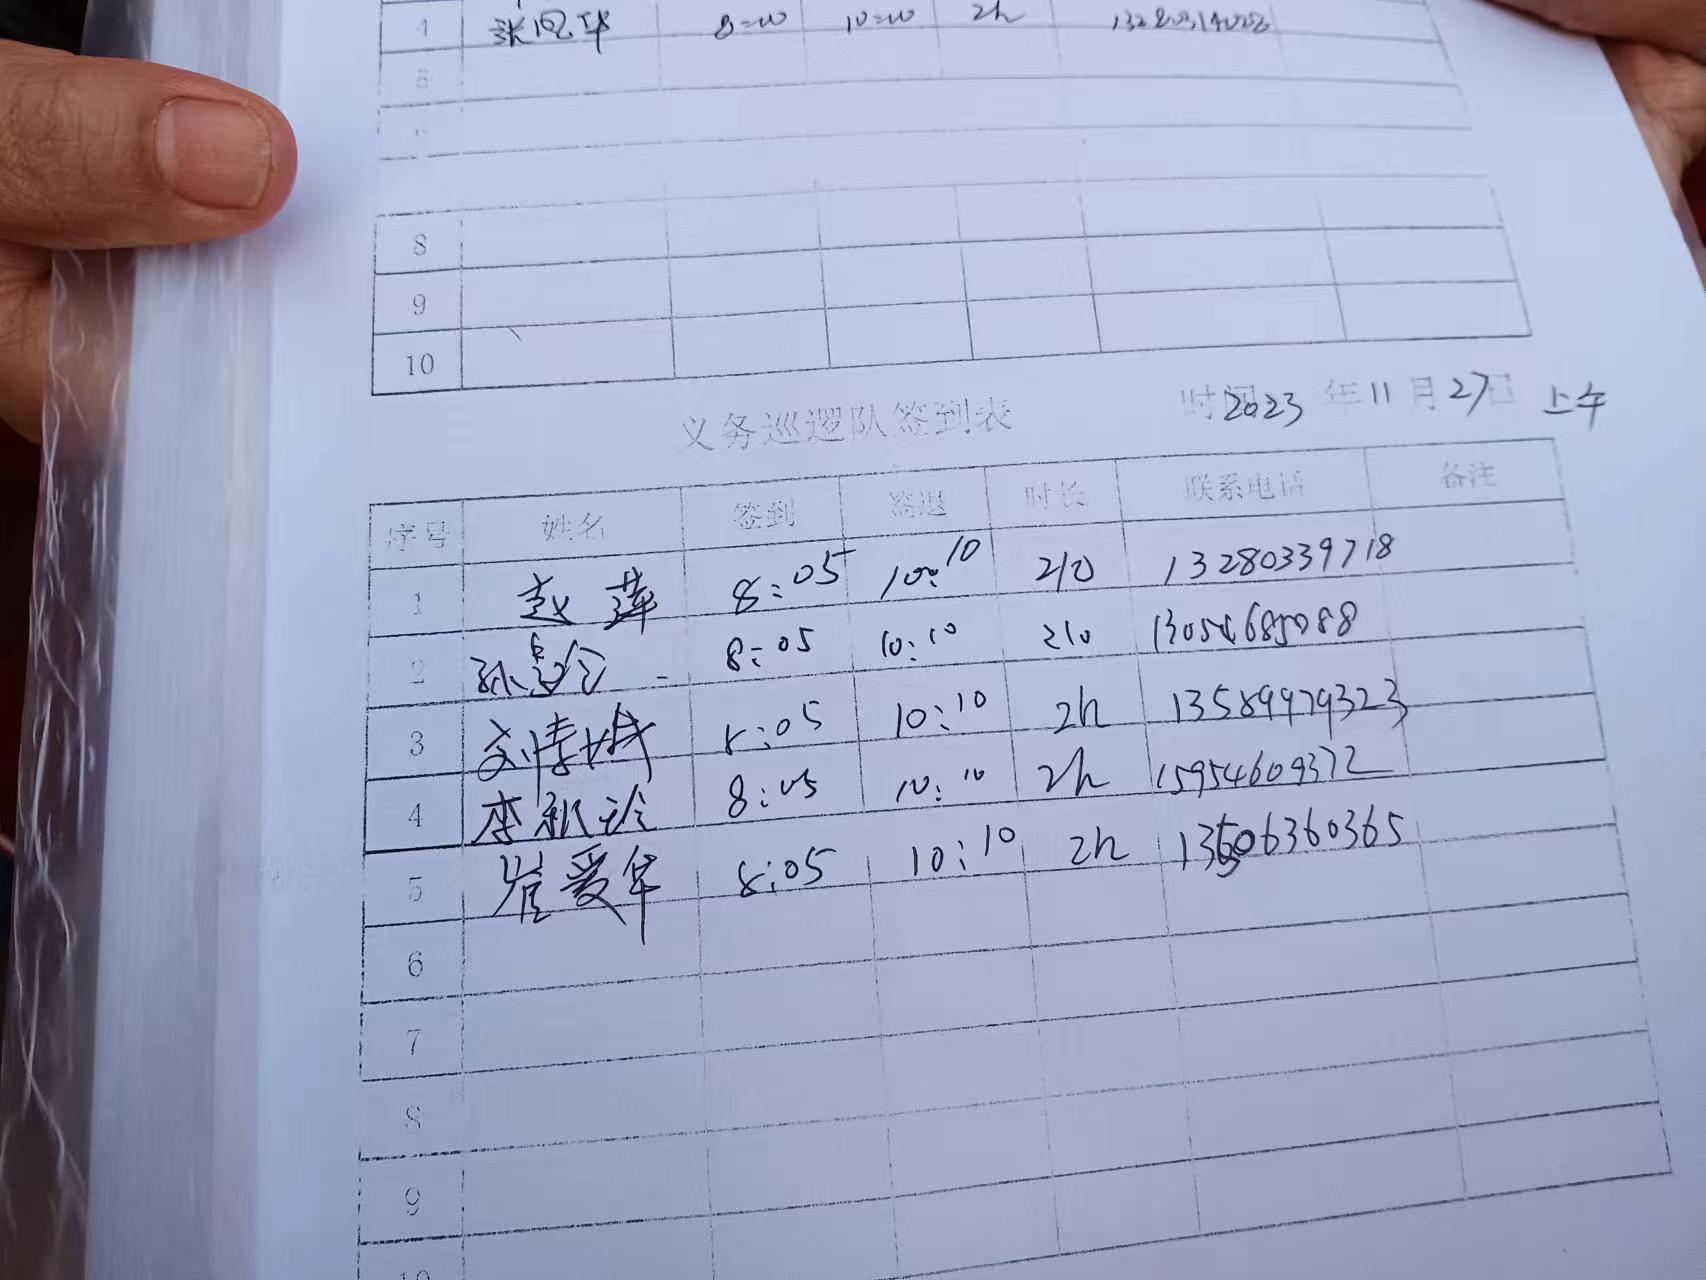 4 张凤华 8:00 10:00 2h
5
8
9
10
义务巡逻队签到表 时间2023年11月27日 上午
序号 姓名 签到 签退 时长 联系电话 备注
1 赵莲 8:05 10:10 210 13280339718
2 孙 8:05 10:10 210
3 8:05 10:10 2h 13589979323
4 李 8:05 10:10 2h 15954609372
5 崔爱华 8:05 10:10 2h 13506360365
6
7
8
9
10